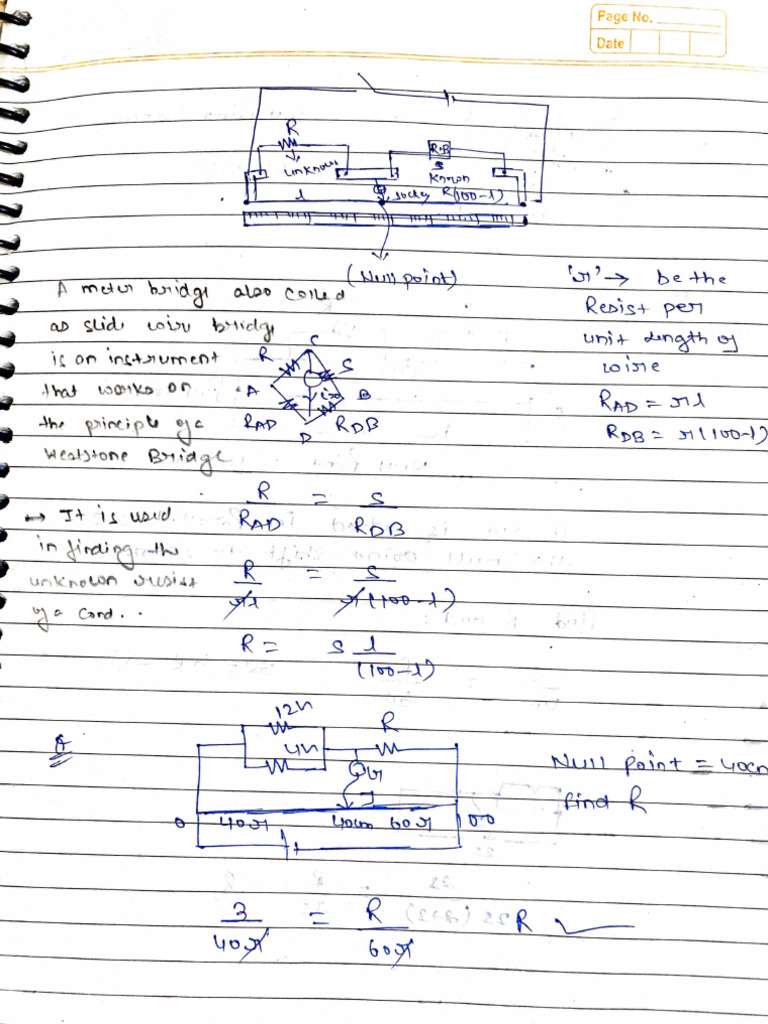 Page No.
Date
R
unknown
R.B
S
Known
l
Jockey
(100-l)
(Null point)
A meter bridge also called
as slide wire bridge
is an instrument
that works on
the principle of a
Weatstone Bridge
'r' → be the
Resist per
unit length of
wire
R_AD = rl
R_DB = r(100-l)
C
R
S
A
B
R_AD
R_DB
D
→ It is used
in finding the
unknown resist
of a cond..
R/R_AD = S/R_DB
R/rl = S/r(100-l)
R = S l/(100-l)
12Ω
4Ω
R
G
J
0 40r 40cm 60r 100
Null point = 40cm
find R
3/40r = R/60r
R